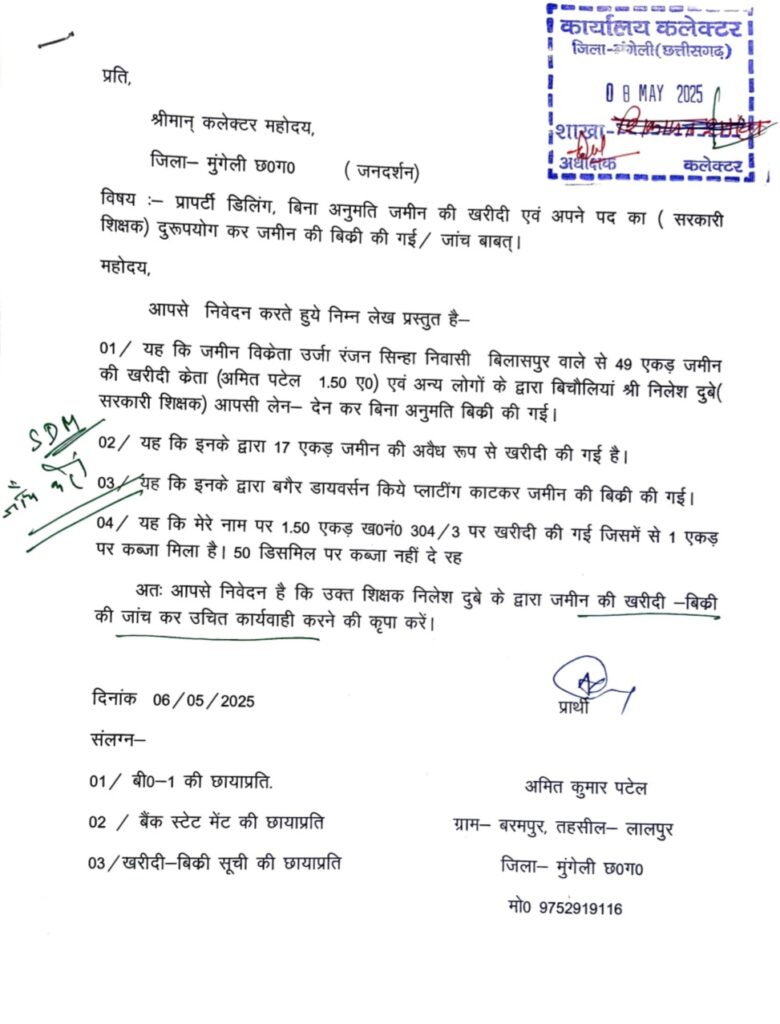 कार्यालय कलेक्टर
जिला-मुंगेली(छत्तीसगढ़)
08 MAY 2025
शाखा-
अधीक्षक कलेक्टर
प्रति,
श्रीमान् कलेक्टर महोदय,
जिला– मुंगेली छ०ग० ( जनदर्शन)
विषय :– प्रापर्टी डिलिंग, बिना अनुमति जमीन की खरीदी एवं अपने पद का ( सरकारी
शिक्षक) दुरूपयोग कर जमीन की बिक्री की गई/ जांच बाबत्।
महोदय,
आपसे निवेदन करते हुये निम्न लेख प्रस्तुत है–
01/ यह कि जमीन विक्रेता उर्जा रंजन सिन्हा निवासी बिलासपुर वाले से 49 एकड़ जमीन
की खरीदी क्रेता (अमित पटेल 1.50 ए०) एवं अन्य लोगों के द्वारा बिचौलियां श्री निलेश दुबे(
सरकारी शिक्षक) आपसी लेन– देन कर बिना अनुमति बिक्री की गई।
SDM
02/ यह कि इनके द्वारा 17 एकड़ जमीन की अवैध रूप से खरीदी की गई है।
जाँच करें
03/ यह कि इनके द्वारा बगैर डायवर्सन किये प्लाटींग काटकर जमीन की बिक्री की गई।
04/ यह कि मेरे नाम पर 1.50 एकड़ ख०नं० 304/3 पर खरीदी की गई जिसमें से 1 एकड़
पर कब्जा मिला है। 50 डिसमिल पर कब्जा नहीं दे रह
अतः आपसे निवेदन है कि उक्त शिक्षक निलेश दुबे के द्वारा जमीन की खरीदी –बिक्री
की जांच कर उचित कार्यवाही करने की कृपा करें।
दिनांक 06/05/2025
प्रार्थी
संलग्न–
01/ बी०-1 की छायाप्रति.
अमित कुमार पटेल
02 / बैंक स्टेट मेंट की छायाप्रति
ग्राम– बरमपुर, तहसील– लालपुर
03/खरीदी–बिक्री सूची की छायाप्रति
जिला– मुंगेली छ०ग०
मो० 9752919116